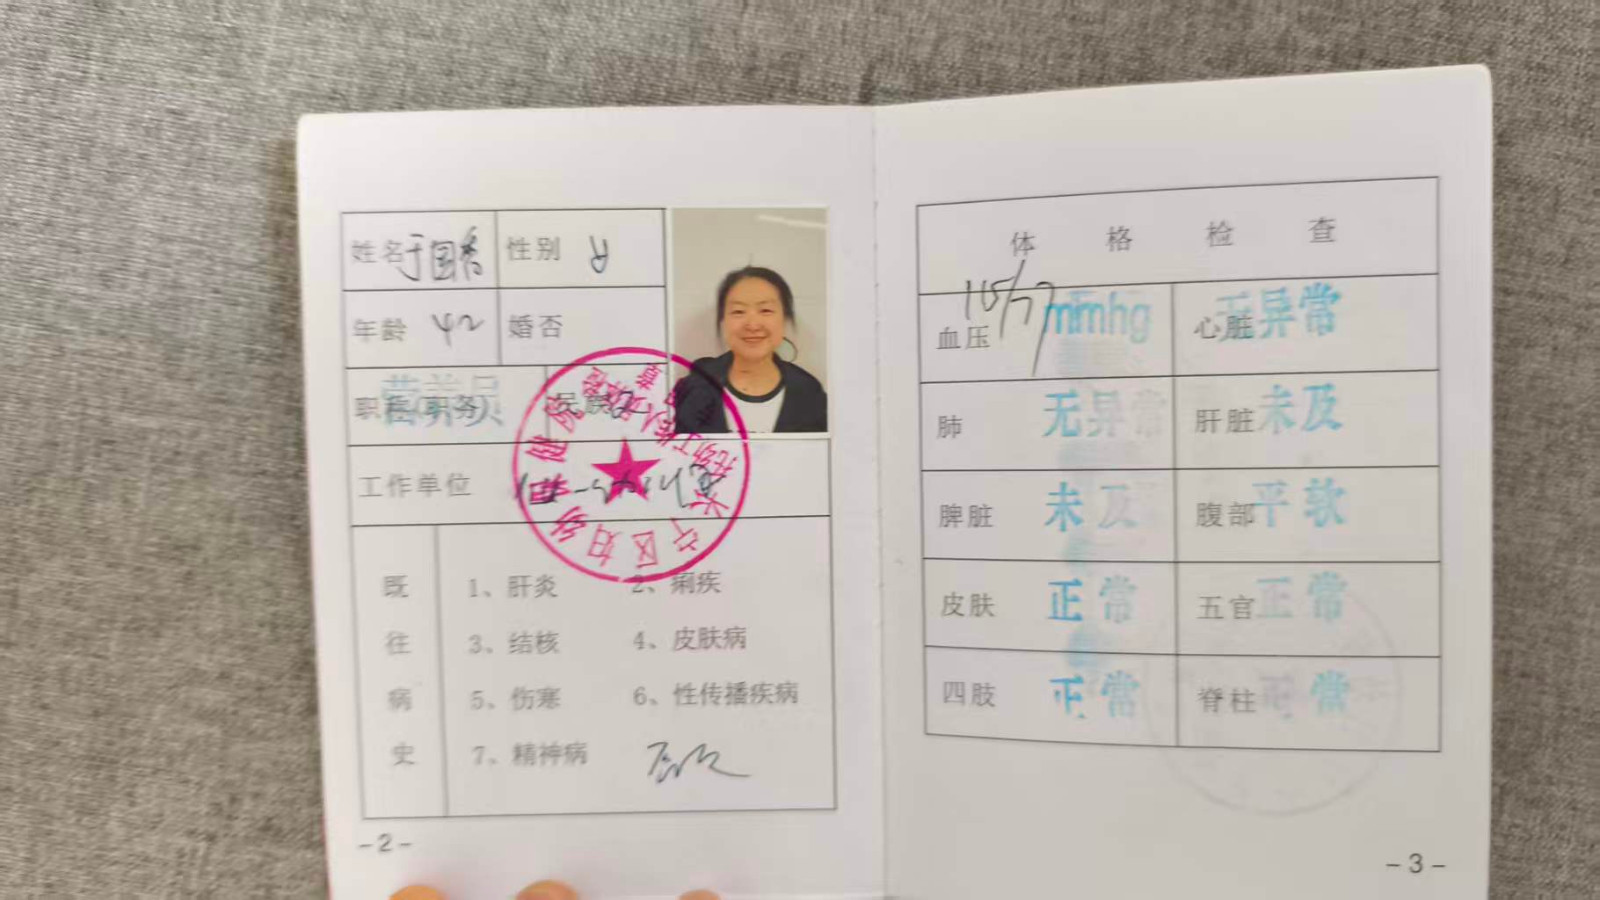 姓名 于国秀 性别 女
年龄 42 婚否
职称(职务) 营养员 民族
工作单位
既往病史
1、肝炎 2、痢疾
3、结核 4、皮肤病
5、伤寒 6、性传播疾病
7、精神病
长宁区妇幼保健院
托幼工作人员体检
章
-2-
体格检查
血压 115/77 mmhg 心脏 无异常
肺 无异常 肝脏 未及
脾脏 未及 腹部 平软
皮肤 正常 五官 正常
四肢 正常 脊柱 正常
-3-